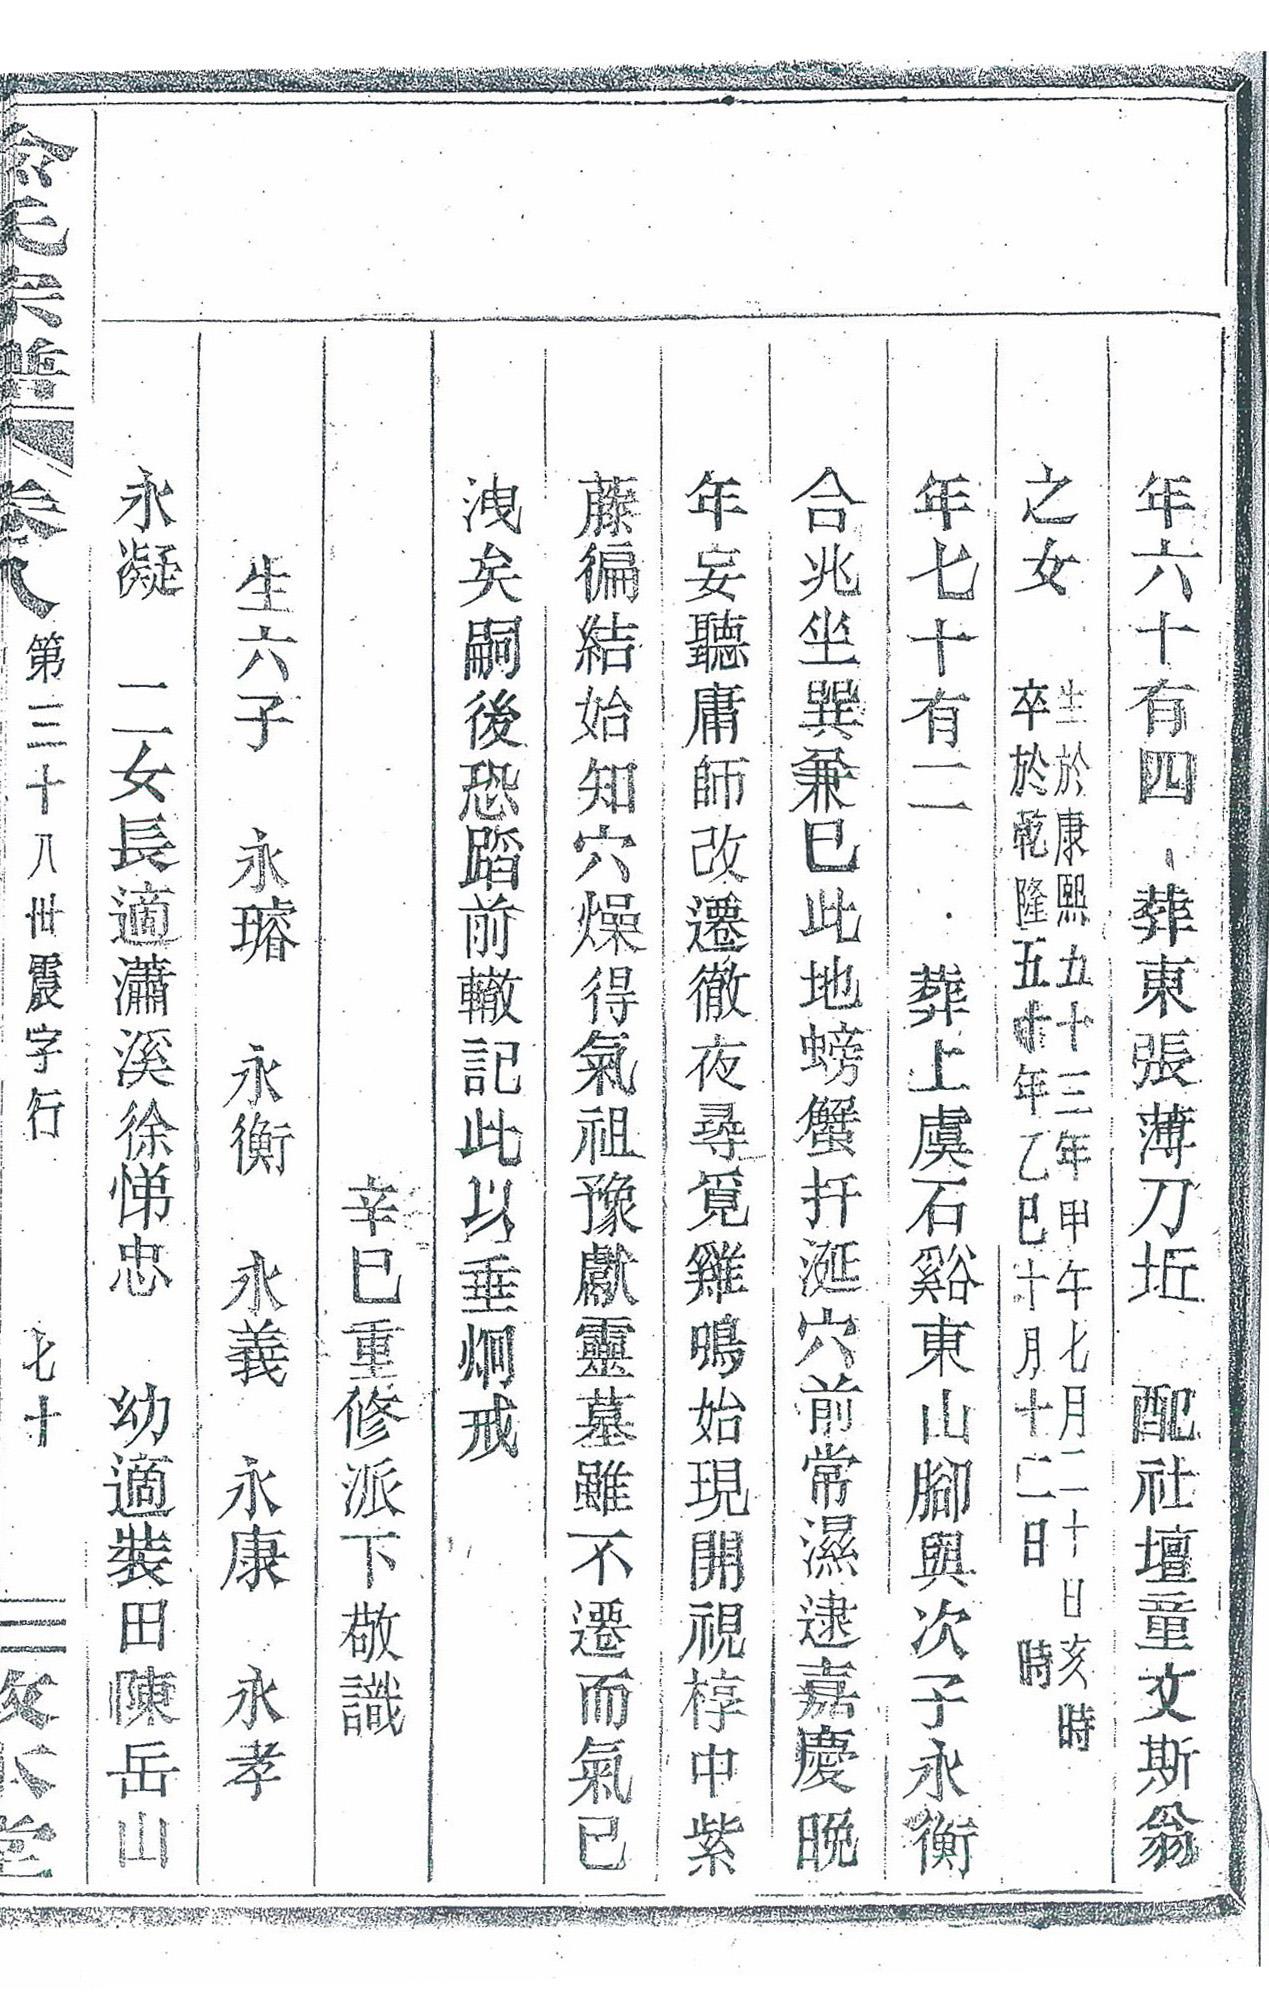 年六十有四 葬東張薄刀坵 配社壇童文斯翁
之女 生於康熙五十三年甲午七月二十日亥時
卒於乾隆五十年乙巳十月十二日 時
年七十有二 葬上虞石谿東山腳與次子永衡
合兆坐巽兼巳此地螃蟹扞涎穴前常濕逮嘉慶晚
年妄聽庸師改遷徹夜尋覓雞鳴始現開視椁中紫
藤徧結始知穴燥得氣祖豫獻靈墓雖不遷而氣已
洩矣嗣後恐蹈前轍記此以垂炯戒
辛巳重修派下敬識
生六子 永璿 永衡 永義 永康 永孝
永凝 二女長適瀟溪徐悌忠 幼適裝田陳岳山
氏宗譜 卷八 第三十八世震字行 七十 敦本堂